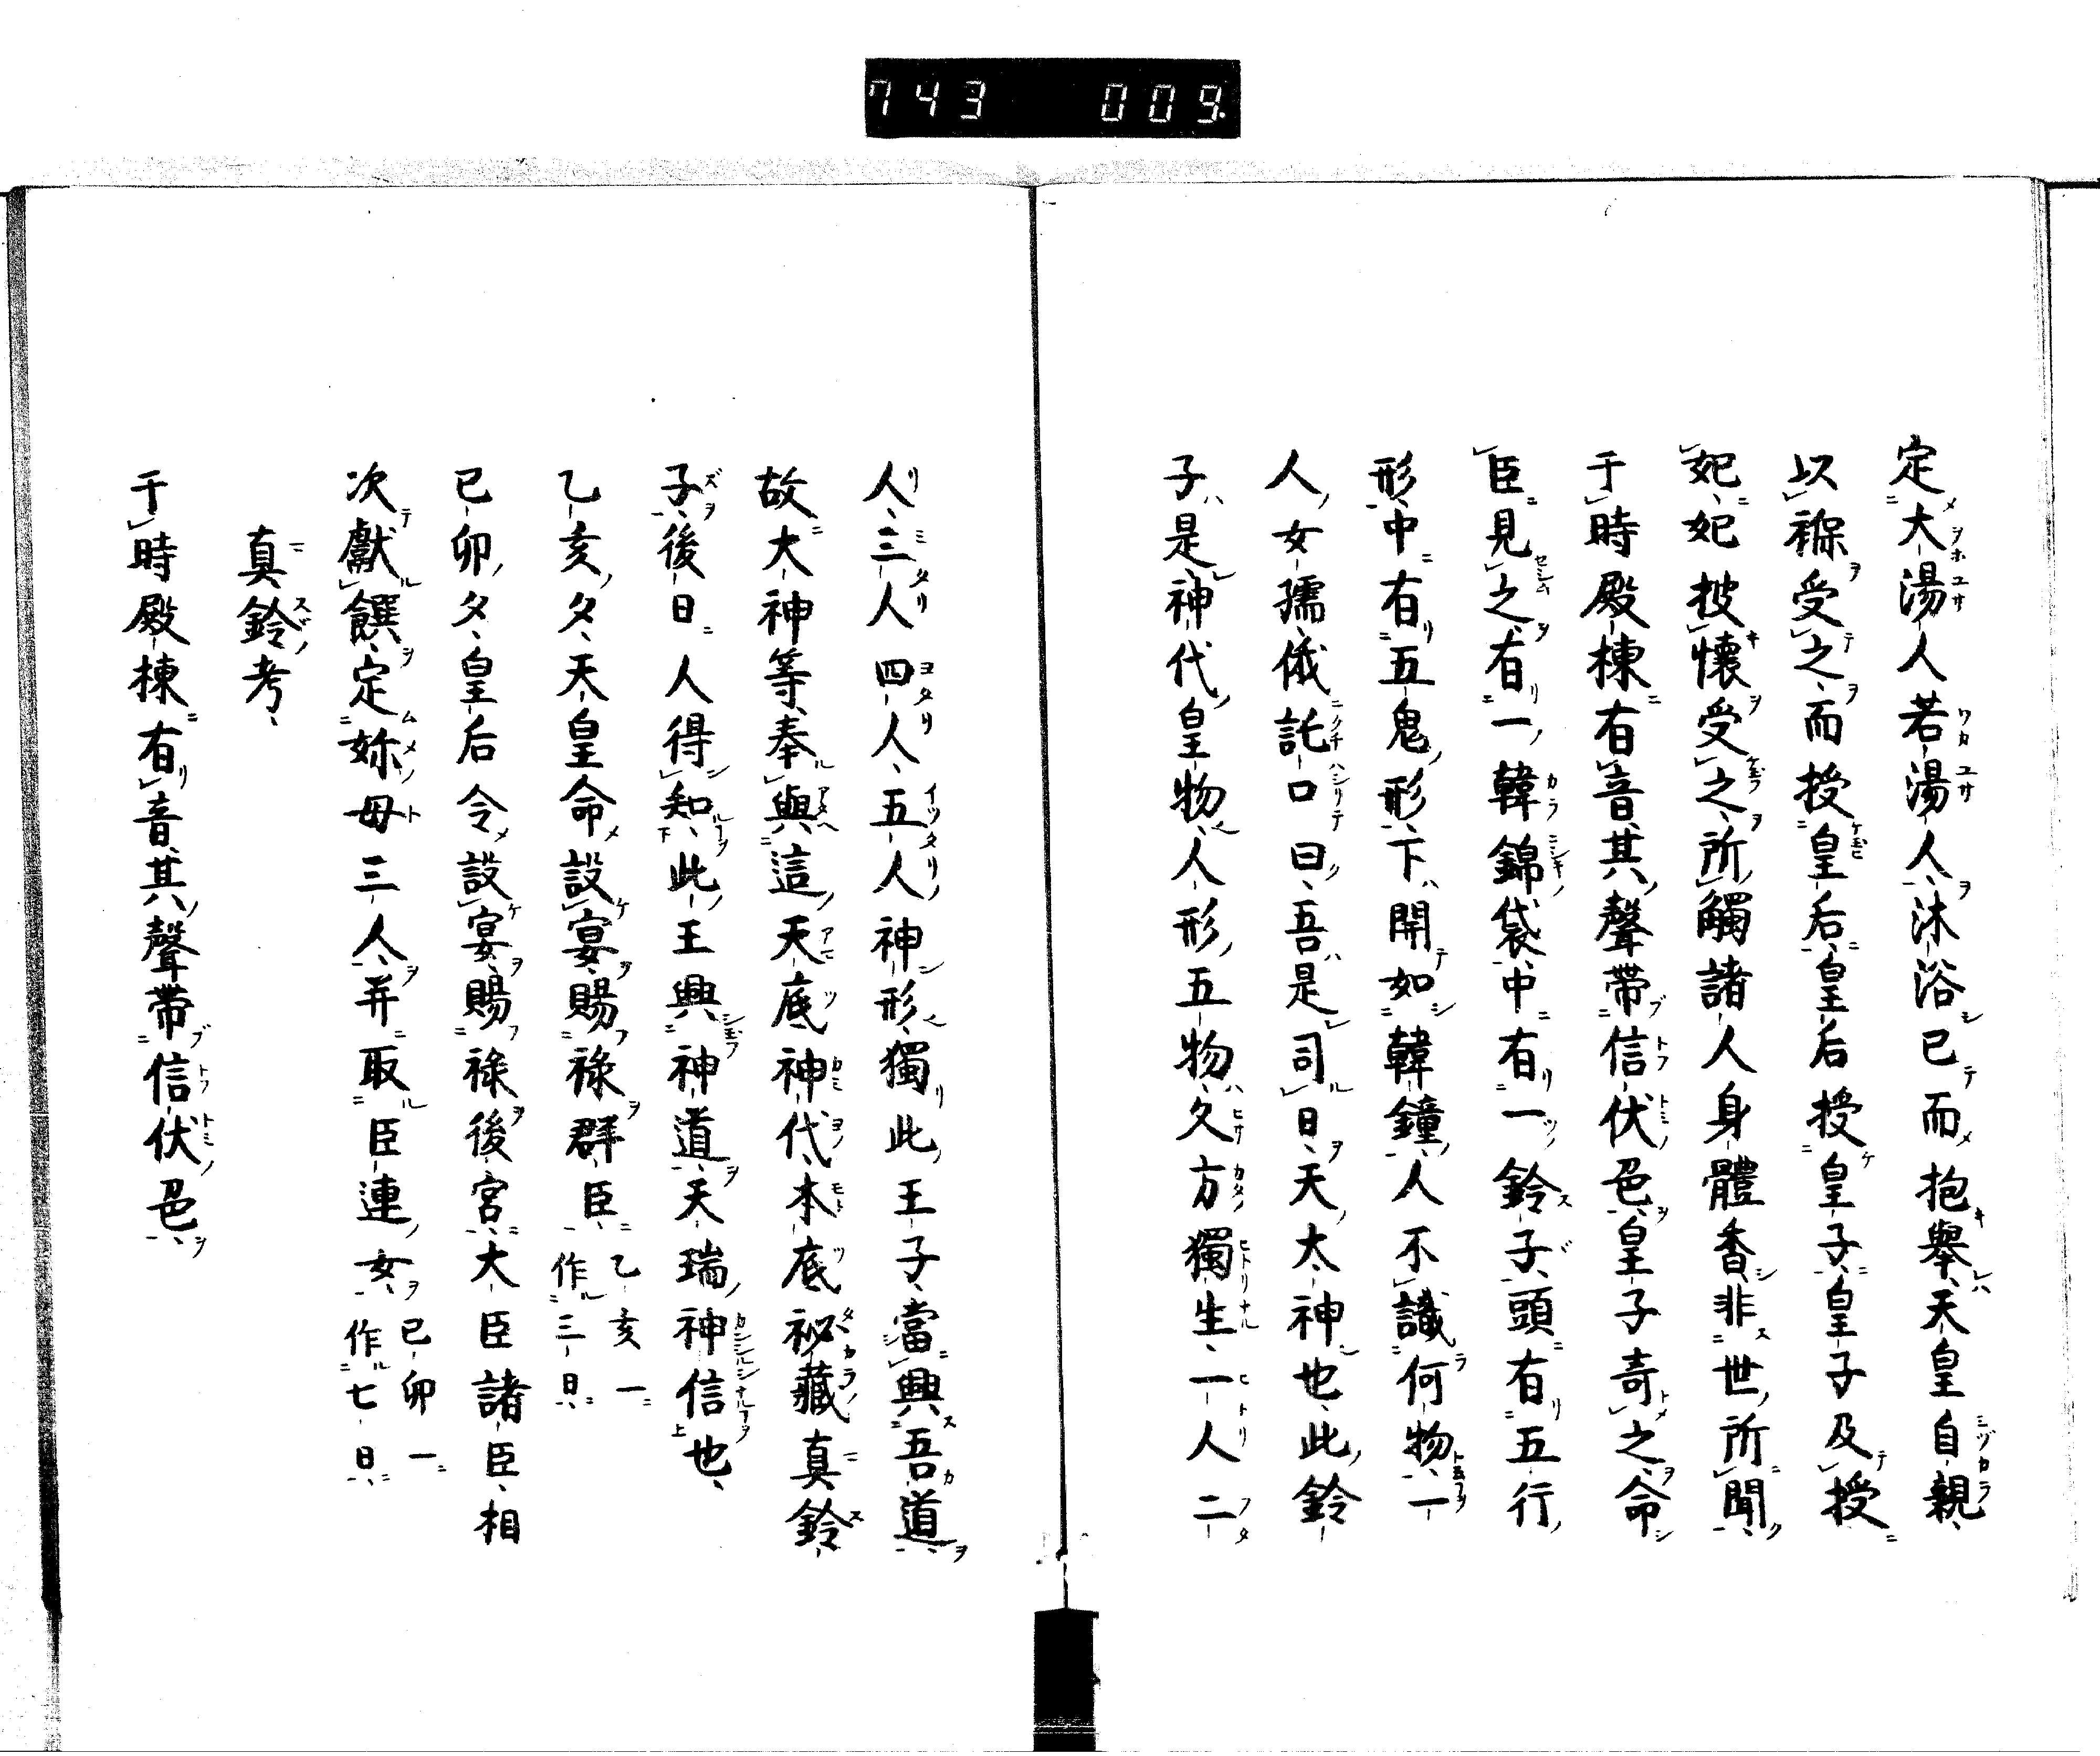 743 009.
定大湯人若湯人沐浴已而抱舉天皇自親
以褓受之而授皇后皇后授皇子皇子及授
妃妃披懷受之所觸諸人身體香非世所聞
于時殿棟有音其聲帶信伏色皇子奇之命
臣見之有一韓錦袋中有一鈴子頭有五行
形中有五鬼形下開如韓鐘人不識何物一
人女孺俄託口曰吾是司日天太神也此鈴
子是神代皇物人形五物久方獨生一人二
人三人四人五人神形獨此王子當興吾道
故大神等奉與這天底神代本底祕藏真鈴
子後日人得知此王興神道天瑞神信也
乙亥夕天皇命設宴賜祿群臣乙亥一作三日
已卯夕皇后令設宴賜祿後宮大臣諸臣相
次獻饌定妳母三人并取臣連女已卯一作七日
真鈴考
于時殿棟有音其聲帶信伏色